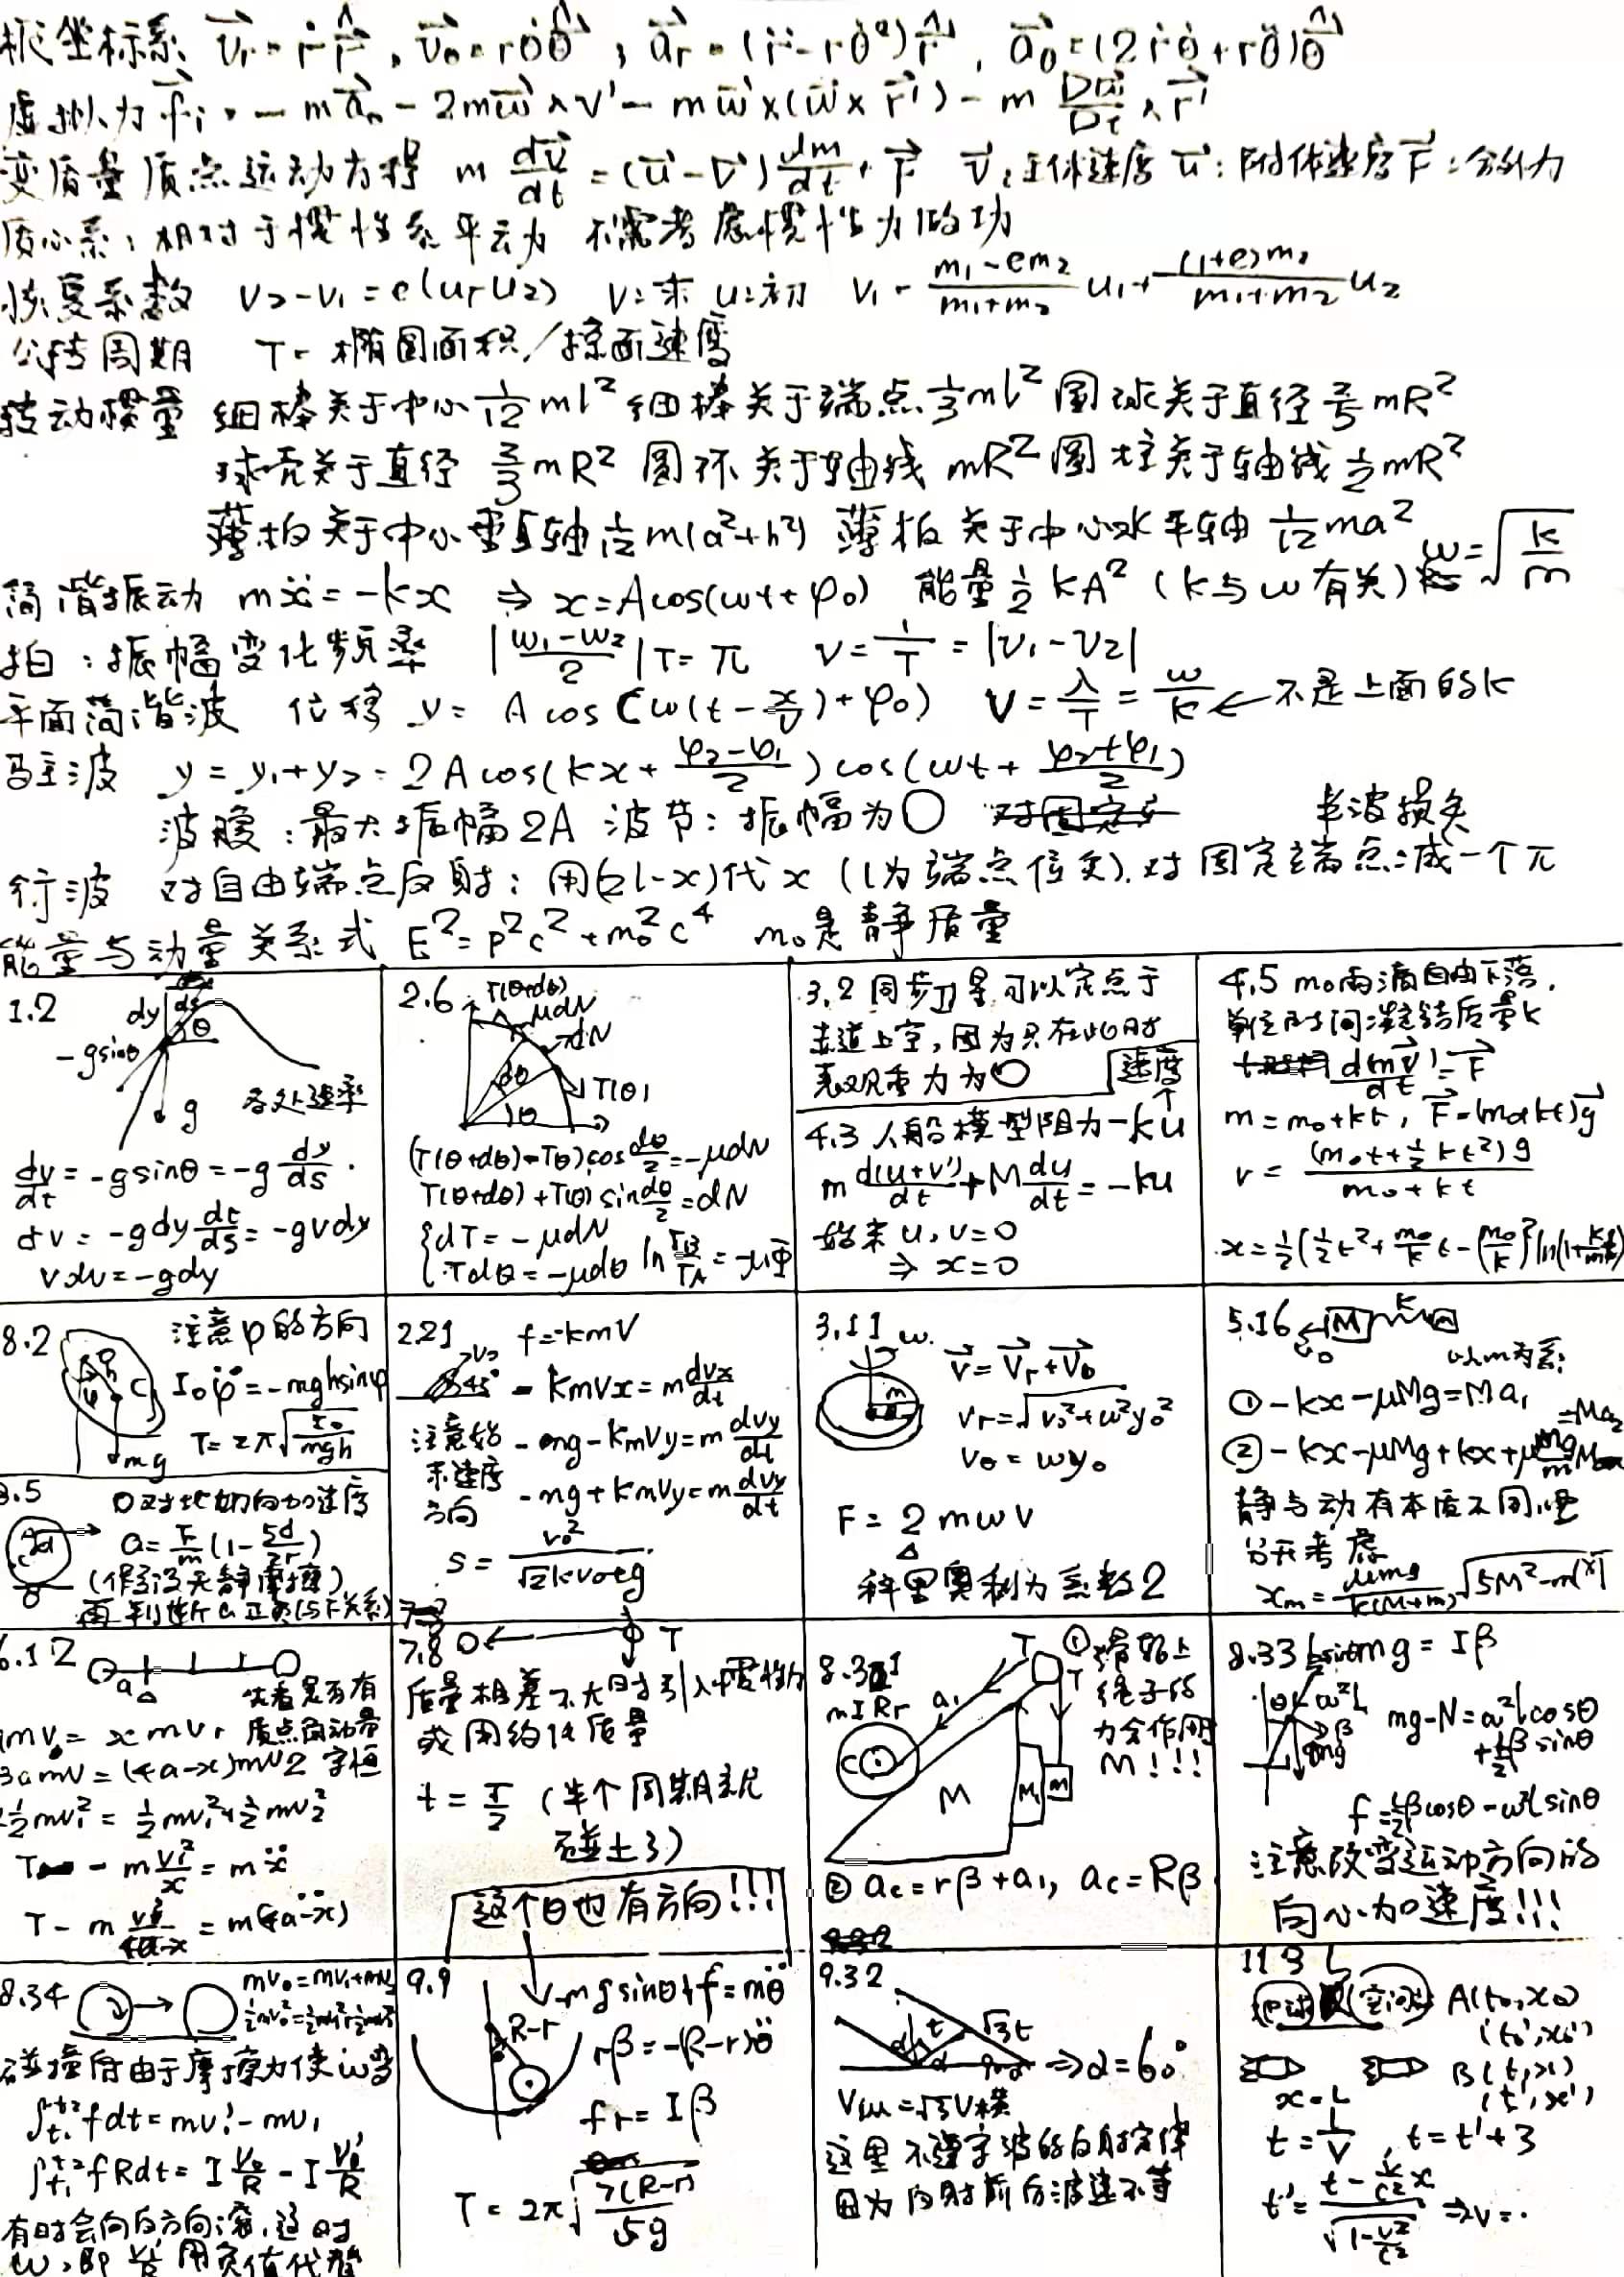 极坐标系 v⃗r = ṙ r̂, v⃗θ = rθ̇ θ̂, a⃗r = (r̈ - rθ̇²) r̂, a⃗θ = (2ṙθ̇ + rθ̈) θ̂
虚拟力 f⃗i = -m a⃗0 - 2m ω⃗ × v' - m ω⃗ × (ω⃗ × r⃗') - m Dω⃗/Dt × r⃗'
变质量质点运动方程 m dv⃗/dt = (u⃗ - v⃗) dm/dt + F⃗ v⃗: 主体速度 u⃗: 附体速度 F⃗: 合外力
质心系: 相对于惯性系平动 不需考虑惯性力做功
恢复系数 v2 - v1 = e(u1 - u2) v: 末 u: 初 v1 = (m1 - em2)/(m1+m2) u1 + (1+e)m2/(m1+m2) u2
公转周期 T = 椭圆面积/掠面速度
转动惯量 细棒关于中心 1/12 ml² 细棒关于端点 1/3 ml² 圆球关于直径 2/5 mR²
球壳关于直径 2/3 mR² 圆环关于轴线 mR² 圆柱关于轴线 1/2 mR²
薄板关于中心垂直轴 1/12 m(a²+b²) 薄板关于中心水平轴 1/12 ma²
简谐振动 mẍ = -kx ⇒ x = Acos(ωt+φ0) 能量 1/2 kA² (k与ω有关) ω = √(k/m)
拍: 振幅变化频率 |(ω1-ω2)/2| T = π ν = 1/T = |ν1-ν2|
平面简谐波 位移 y = A cos[ω(t - x/v) + φ0] V = λ/T = ω/k ← 不是上面的k
驻波 y = y1+y2 = 2A cos(kx + (φ2-φ1)/2) cos(ωt + (φ2+φ1)/2)
波腹: 最大振幅2A 波节: 振幅为0 半波损失
行波 对自由端点反射: 用(2l-x)代x (l为端点位矢). 对固定端点: 减一个π
能量与动量关系式 E² = p²c² + m0²c⁴ m0是静质量
1.2
dy ds θ
-gsinθ
g 各处速率
dv/dt = -gsinθ = -g dy/ds.
dv = -gdy dt/ds = -gvdy
vdv = -gdy
2.6 T(θ+dθ)
μdN
dN
dθ T(θ)
θ
(T(θ+dθ)-T(θ))cos dθ/2 = -μdN
T(θ+dθ)+T(θ) sin dθ/2 = dN
{dT = -μdN
Tdθ = -μdθ ln TB/TA = -μΦ
3.2 同步卫星可以定点于
赤道上空, 因为只在此时
表观重力为0
速度
4.3 人船模型阻力-ku
m d(u+v')/dt + M du/dt = -ku
始末u, v=0
⇒ x=0
4.5 m0雨滴自由下落,
单位时间凝结质量k
d(mv⃗)/dt = F⃗
m = m0+kt, F⃗ = (m0+kt)g⃗
v = (m0t + 1/2 kt²)g / (m0+kt)
x = 1/2(1/2 t² + m0/k t - (m0/k)² ln(1+kt/m0))
8.2 注意φ的方向
I0φ̈ = -mghsinφ
T = 2π√(I0/mgh)
mg
3.5 O对地的向加速度
a = F/m (1 - 5d/2r)
(假设无静摩擦)
再判断a正负(与F关系)
2.21 f = -kmV
v0 45°
-kmvx = m dvx/dt
注意始 -mg-kmvy = m dvy/dt
末速度 -mg+kmvy = m dvy/dt
方向
s = v0²/(√2kv0+g)
3.11 ω
m
v⃗ = v⃗r + v⃗θ
vr = √(v0²+ω²y0²)
vθ = ωy0
F = 2mωv
科里奥利力系数2
5.16 M k m
v0
以m为系:
① -kx-μMg = Ma1
② -kx-μMg+kx+μmg/m M = Ma2
静与动有本质不同, 要
分开考虑
xm = μmg/k(M+m) √(5M²-m²)
6.12
a
先看是否有
质点角动量
守恒
3amv = (4a-x)mv2
1/2 mv² = 1/2 mv1² + 1/2 mv2²
T - m v1²/x = mẍ
T - m v2²/(4a-x) = m(4a-ẍ)
7.8 T
质量相差不大时引入惯性力
或用约化质量
t = T/2 (半个周期就
碰上了)
这个θ也有方向!!!
8.31
mIRr
T ①滑轮上
绳子的
力会作用
M!!!
a1 C M M1 m
② ac = rβ+a1, ac = Rβ
8.33 l/2 sinθ mg = Iβ
θ ω²L β mg
mg-N = ω²lcosθ
+ l/2 β sinθ
f = l/2 βcosθ - ω²lsinθ
注意改变运动方向的
向心加速度!!!
8.34
mv0 = mv1+mv2
1/2 mv0² = 1/2 mv1² + 1/2 mv2²
碰撞后由于摩擦力使ω
∫t1^t2 fdt = mv1' - mv1
∫t1^t2 fRdt = I v0/R - I v1'/R
有时会向反方向滚, 这时
ω, 即 v/R 用负值代替
9.9
-mgsinθ+f = mθ̈
R-r
rβ = -(R-r)θ̈
fr = Iβ
T = 2π√(7(R-r)/5g)
9.32
α t √3t
⇒α=60°
V纵 = √3V横
这里不遵守波的反射定律
因为反射前后波速不等
11.3 L
地球 空间站 A(t0,x0)
(t0',x0')
B(t,x)
(t',x')
x = L
t = L/v, t = t'+3
t' = (t - v/c² x)/√(1-v²/c²) ⇒v=..